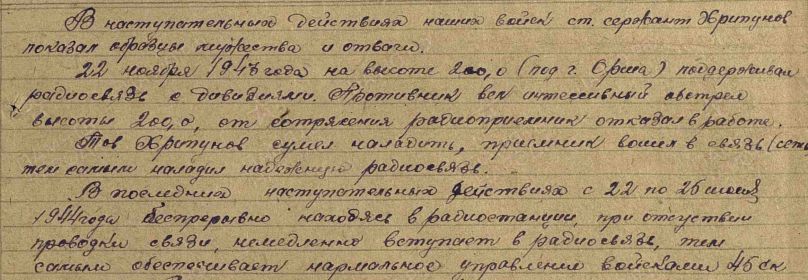 В наступательных действиях наших войск ст. сержант Хрипунов
показал образцы мужества и отваги.
22 ноября 1943 года на высоте 200,0 (под г. Орша) поддерживал
радиосвязь с дивизиями. Противник вел интенсивный обстрел
высоты 200,0, от сотрясения радиоприемник отказал в работе.
Тов Хрипунов сумел наладить, приемник вошел в связь (сеть
тем самым наладил надежную радиосвязь.
В последних наступательных действиях с 22 по 26 июня
1944 года беспрерывно находясь в радиостанции, при отсуствии
проводки связи, немедленно вступает в радиосвязь, тем
самым обеспечивает нармальное управление войсками 45 ск